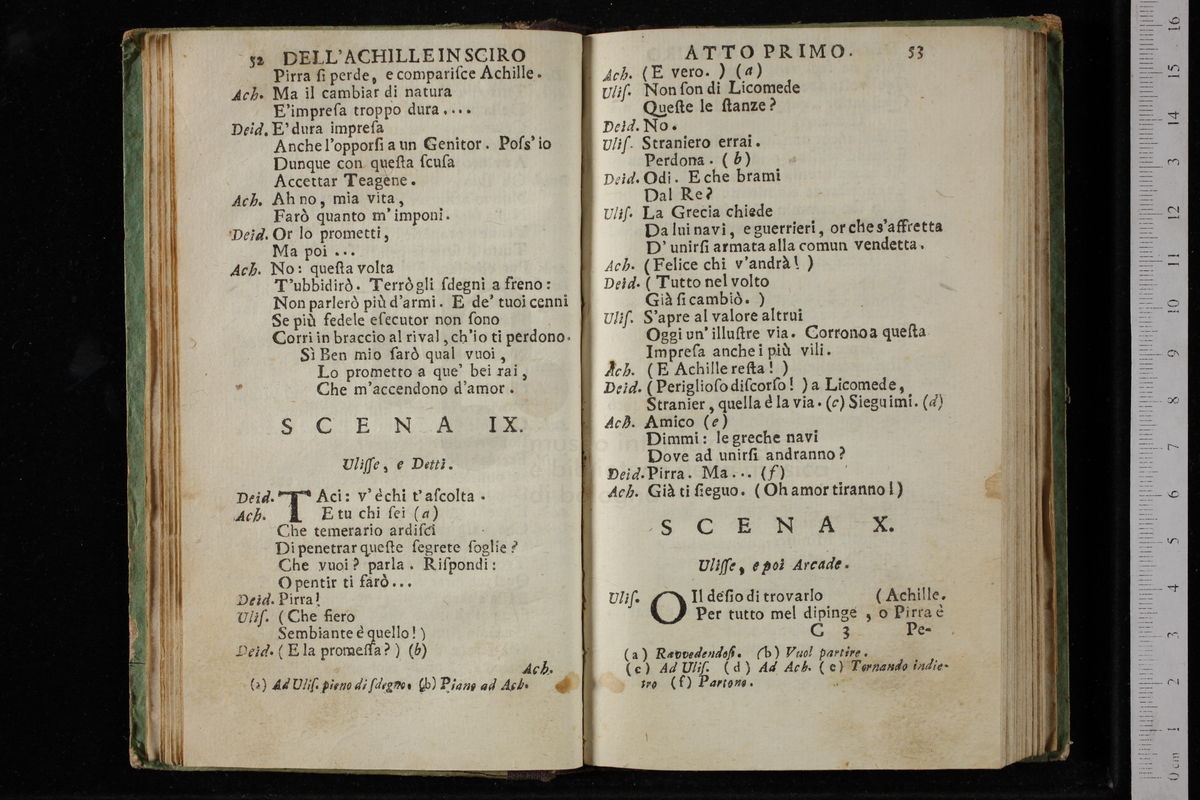 52 DELL'ACHILLE IN SCIRO
Pirra ſi perde, e compariſce Achille.
Ach. Ma il cambiar di natura
E'impreſa troppo dura....
Deid. E'dura impreſa
Anche l'opporſi a un Genitor. Poſs'io
Dunque con queſta ſcuſa
Accettar Teagene.
Ach. Ah no, mia vita,
Farò quanto m'imponi.
Deid. Or lo prometti,
Ma poi ...
Ach. No: queſta volta
T'ubbidirò. Terrò gli ſdegni a freno:
Non parlerò più d'armi. E de' tuoi cenni
Se più fedele eſecutor non ſono
Corri in braccio al rival, ch'io ti perdono.
Sì Ben mio ſarò qual vuoi,
Lo prometto a que' bei rai,
Che m'accendono d'amor.
SCENA IX.
Uliſſe, e Detti.
Deid. TAci: v'è chi t'aſcolta.
Ach. E tu chi ſei (a)
Che temerario ardiſci
Di penetrar queſte ſegrete ſoglie?
Che vuoi? parla. Riſpondi:
O pentir ti farò...
Deid. Pirra!
Uliſ. (Che fiero
Sembiante è quello!)
Deid. (E la promeſſa?) (b)
Ach.
(a) Ad Uliſ. pieno di ſdegno. (b) Piano ad Ach.
ATTO PRIMO. 53
Ach. (E vero.) (a)
Uliſ. Non ſon di Licomede
Queſte le ſtanze?
Deid. No.
Uliſ. Straniero errai.
Perdona. (b)
Deid. Odi. E che brami
Dal Re?
Uliſ. La Grecia chiede
Da lui navi, e guerrieri, or che s'affretta
D'unirſi armata alla comun vendetta.
Ach. (Felice chi v'andrà!)
Deid. (Tutto nel volto
Già ſi cambiò.)
Uliſ. S'apre al valore altrui
Oggi un'illuſtre via. Corrono a queſta
Impreſa anche i più vili.
Ach. (E Achille reſta!)
Deid. (Periglioſo diſcorſo!) a Licomede,
Stranier, quella è la via. (c) Sieguimi. (d)
Ach. Amico (e)
Dimmi: le greche navi
Dove ad unirſi andranno?
Deid. Pirra. Ma... (f)
Ach. Già ti ſieguo. (Oh amor tiranno!)
SCENA X.
Uliſſe, e poi Arcade.
Uliſ. O Il deſio di trovarlo (Achille.
Per tutto mel dipinge, o Pirra è
C 3 Pe-
(a) Ravvedendoſi. (b) Vuol partire.
(c) Ad Uliſ. (d) Ad Ach. (e) Tornando indie-
tro (f) Partono.